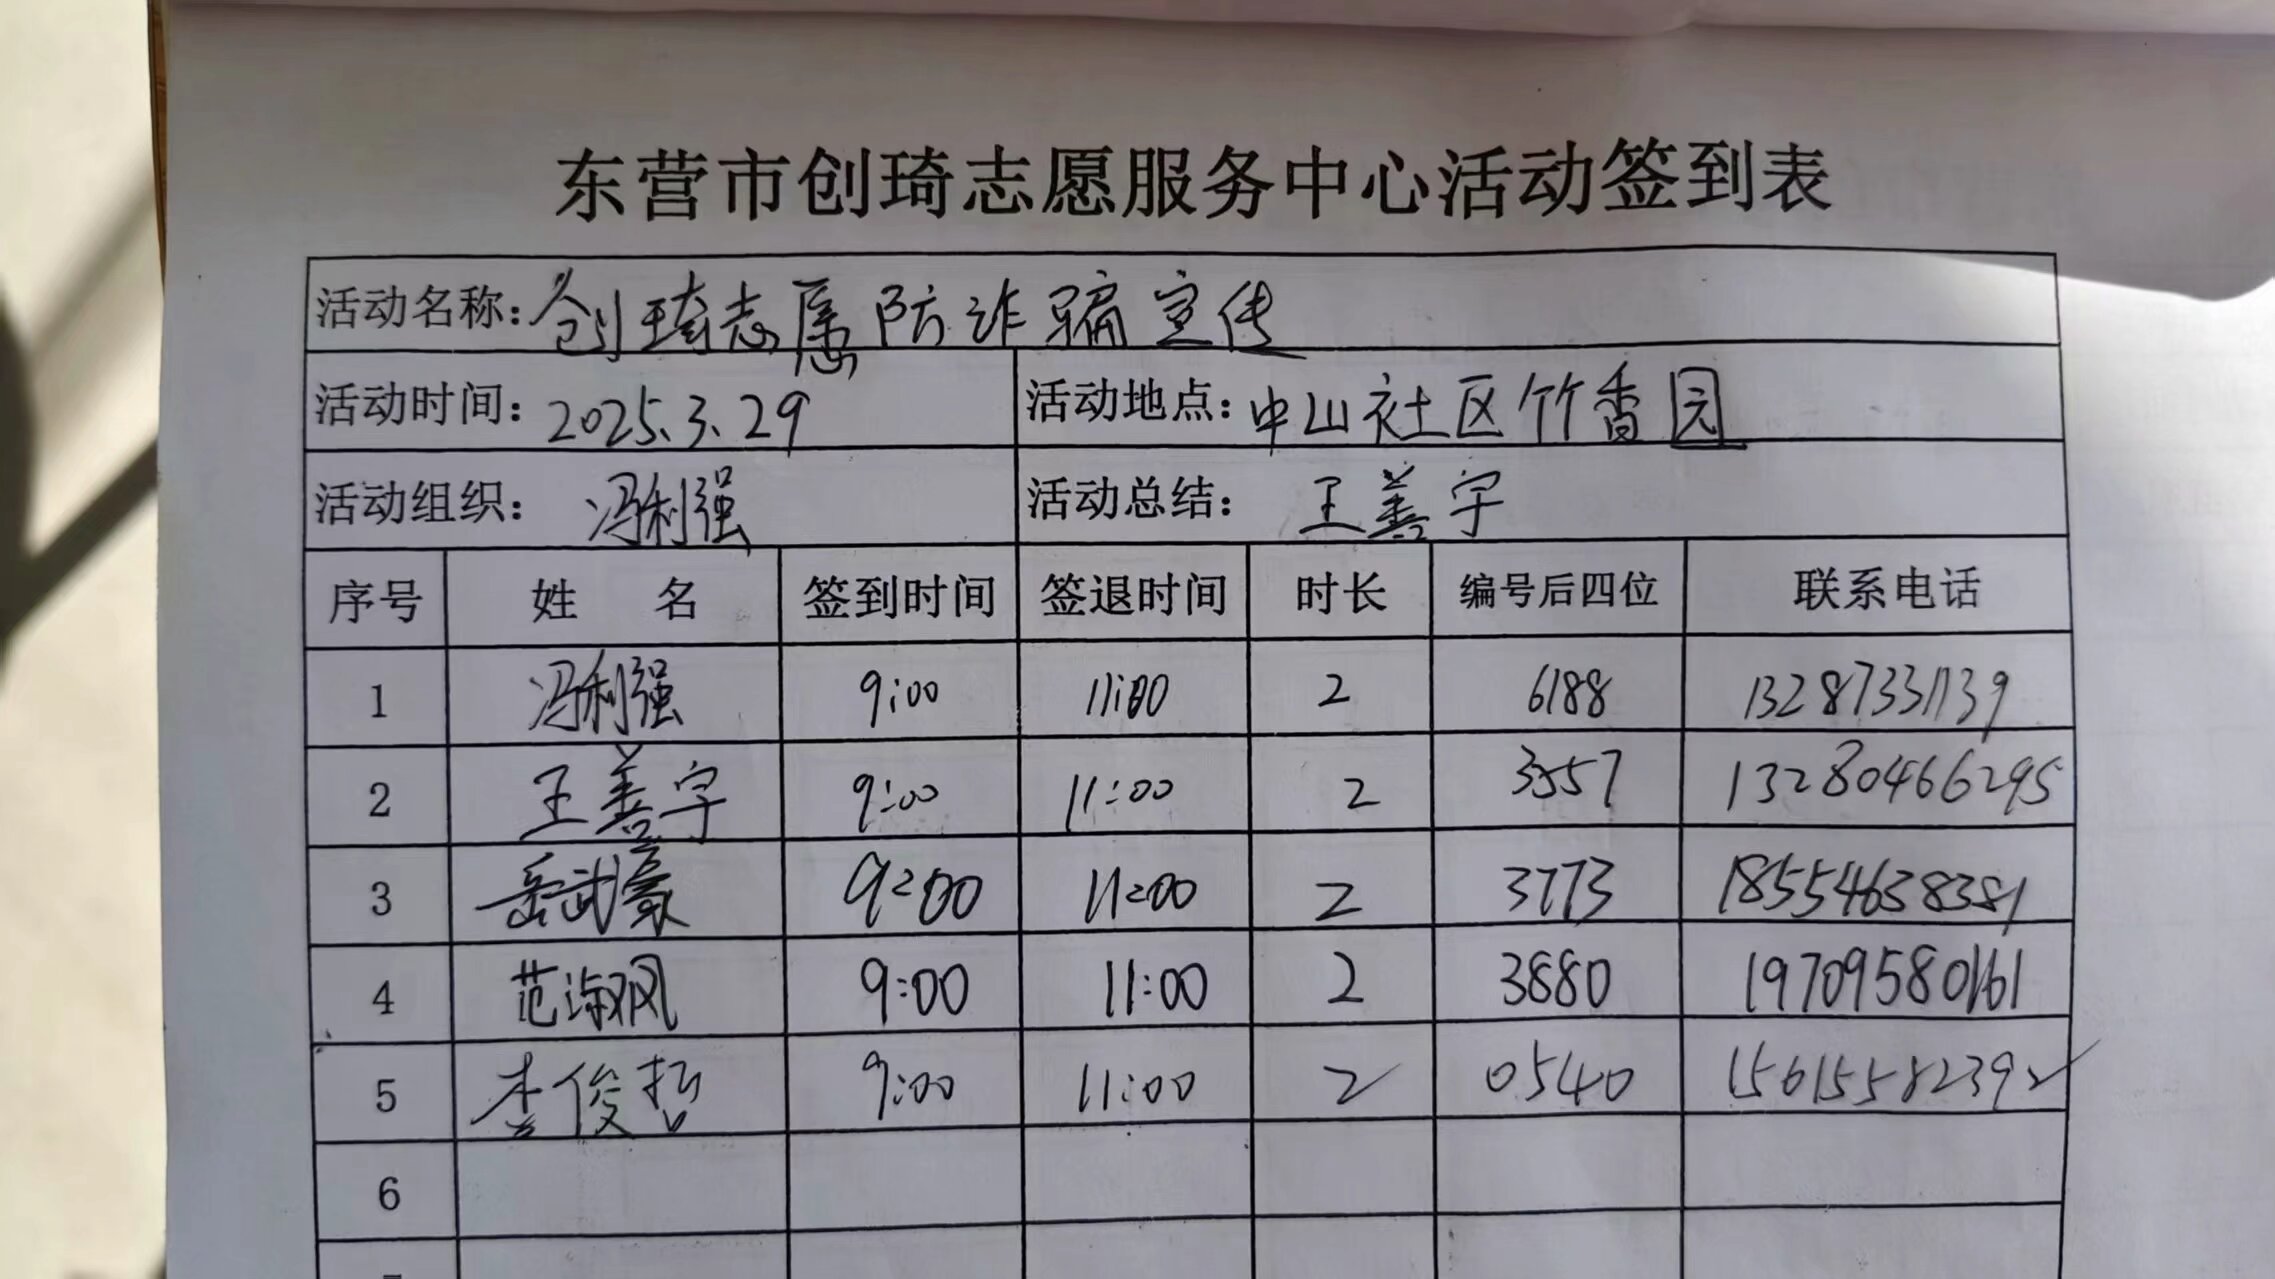 东营市创琦志愿服务中心活动签到表
活动名称：创琦志愿防诈骗宣传
活动时间：2025.3.29 活动地点：中山社区竹香园
活动组织：冯利强 活动总结：王善宇
序号 姓 名 签到时间 签退时间 时长 编号后四位 联系电话
1 冯利强 9:00 11:00 2 6188 13287331139
2 王善宇 9:00 11:00 2 3557 13280466295
3 岳武豪 9:00 11:00 2 3773 18554638381
4 范淑凤 9:00 11:00 2 3880 19709580161
5 李俊哲 9:00 11:00 2 0540 15615582392
6